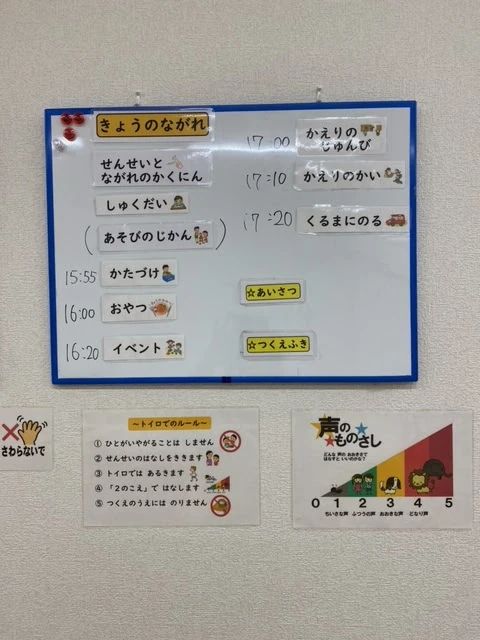 きょうのながれ
せんせいと
ながれのかくにん
しゅくだい
(あそびのじかん)
15:55 かたづけ
16:00 おやつ
16:20 イベント
17:00 かえりの
じゅんび
17:10 かえりのかい
17:20 くるまにのる
☆あいさつ
☆つくえふき
さわらないで
～トイロでのルール～
① ひとがいやがることは しません
② せんせいのはなしをききます
③ トイロでは あるきます
④ 「2のこえ」で はなします
⑤ つくえのうえには のりません
声の
ものさし
どんな 声の おおきさで
はなすと いいのかな?
0 1 2 3 4 5
ちいさな声 ふつうの声 おおきな声 どなり声